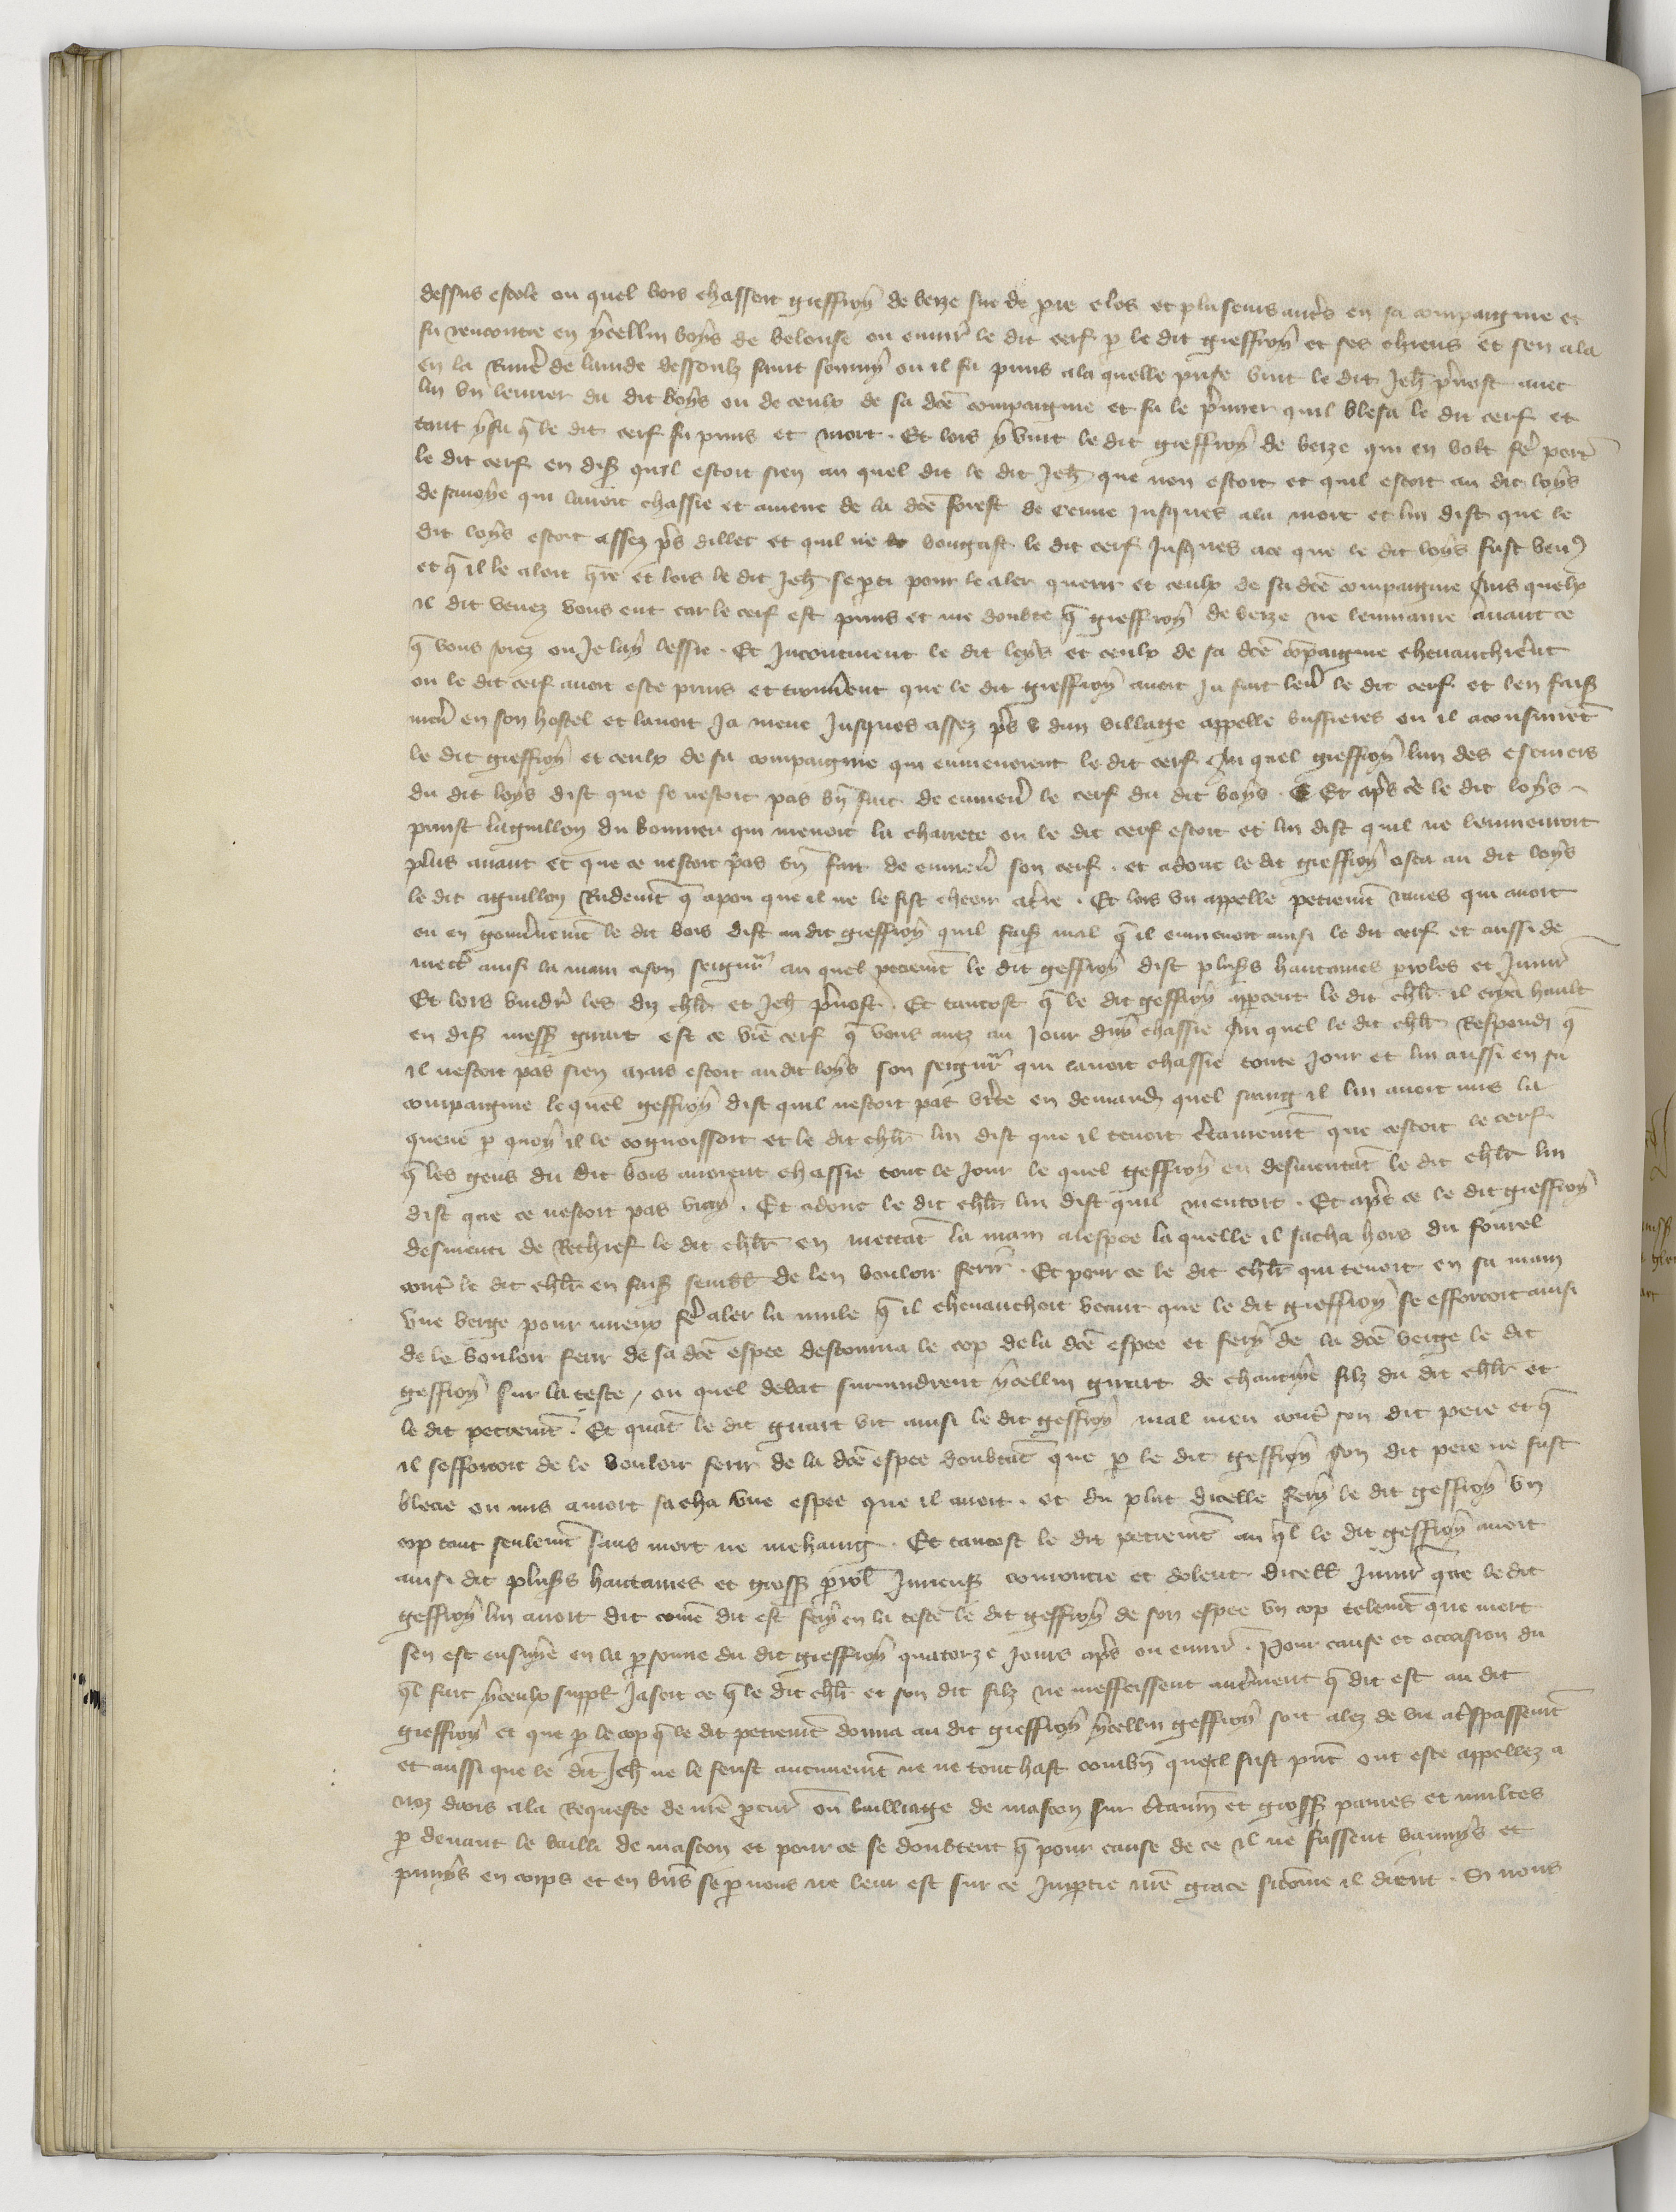 dessus escole ou quel bois chassoit gieffroy de verze sire de pie clos et pluseurs autrs en sa compaignie et
fu rencontre en ycellui boys de belouse ou enuir le dit cerf p le dit gieffroy et ses chiens et sen ala
en la Riuir de lande dessoulz saint sorny ou il fu prins a la quelle prise vint le dit Jeh pruost auec
lui vn leurier du dit loys ou de ceulx de sa dce compaignie et fu le prmier quil blesa le dit cerf et
tant y fu q le dit cerf fu prins et mort . Et lors y vint le dit gieffroy de verze qui en volt fe port
le dit cerf en dis quil estoit sien au quel dit le dit Jeh que non estoit et quil estoit au dit loys
de sauoye qui lauoit chassie et amene de la dce forest de jusques a la mort et lui dist que le
dit loys estoit assez prs dillec et quil ne bougast le dit cerf Jusques ace que le dit loys fust venu
et q il le aloit qre et lors le dit Jeh se pti pour le aler querir et ceulx de sa dce compaignie Aus quelx
il dit venez vous ent car le cerf est prins et me doubte q gieffroy de verze ne lenmaine auant ce
q vous soiez ou Je lay lessie . Et Incontinent le dit loys et ceulx de sa dce compaignie cheuauchierent
ou le dit cerf auoit este prins et trouuerent que le dit gieffroy auoit ja fait leu le dit cerf et len fais
mer en son hostel et lauoit Ja mene Jusques assez prs dun village appelle bussieres ou il aconsuirent
le dit gieffroy et ceulx de sa compaignie qui enmenerent le dit cerf Au quel gieffroy lun des escuiers
du dit loys dist que se nestoit pas bn fait de enmener le cerf du dit loys . Et aprs ce le dit loys
prinst laguillon du bouuier qui menoit la charrete ou le dit cerf estoit et lui dist quil ne lenmenroit
plus auant et que ce nestoit pas bn fait de enmener son cerf . et adonc le dit gieffroy osta au dit loys
le dit aguillon Rudemt q apou que il ne le fist cheoir atre . Et lors vn appelle petremt qui auoit
eu en gouuernemt le dit bois dist au dit gieffroy quil fais mal q il enmenoit ainsi le dit cerf et aussi de
mectr ainsi la main a son seignr au quel petremt le dit geffroy dist pluss hautaines paroles et Iniur
Et lors vindr les diz chlr et Jeh pruost . Et tantost q le dit geffroy apceut le dit chlr il crya hault
en dis mess girart est ce vre cerf q vous auez au jour duy chassie Au quel le dit chlr Respondi q
il nestoit pas sien mais estoit au dit loys son seignr qui lauoit chassie toute Jour et lui aussi en sa
compaignie le quel geffroy dist quil nestoit pas vrte en demand quel saing il lui auoit mis la
queue p quoy il le cognoissoit et le dit chlr lui dist que il tenoit crtainemt que cestoit le cerf
q les gens du dit bois auoient chassie tout le jour le quel geffroy en desmentat le dit chlr lui
dist que ce nestoit pas vray . Et adonc le dit chlr lui dist quil mentoit . Et apre ce le dit gieffroy
desmenti de Rechief le dit chlr en mettat la main alespee la quelle il sacha hors du fourel
contr le dit chlr en fais sembl de len vouloir ferir . Et pour ce le dit chlr qui tenoit en sa main
vne verge pour mieux fe aler la mule q il cheuauchoit veant que le dit gieffroy se efforcoit ainsi
de le vouloir ferir de sa dce espee destourna le cop de la dce espee et fery de la dce verge le dit
geffroy sur la teste / ou quel debat suruindrent ycellui girart de chantyse filz du dit chlr et
le dit petremt . Et quat le dit girart vit ainsi le dit geffroy mal meu contr son dit pere et q
il sefforcoit de le vouloir ferir de la dce espee doubtat que p le dit geffroy son dit pere ne fust
blecie ou mis a mort sacha vne espee que il auoit . et du plat dicelle fery le dit geffroy vn
cop tant seulemt sans mort ne mehaing . Et tantost le dit petremt au ql le dit geffroy auoit
ainsi dit pluss hautaines et gross prol Iniurieus couroucie et dolent dicell Iniur que le dit
geffroy lui auoit dit come dit est fery en la teste le dit geffroy de son espee vn cop telemt que mort
sen est ensuyuie en la psonne du dit gieffroy quatorze jours aprs ou enuir . Pour cause et occasion du
ql fait yceulx suppl Jasoit ce q le dit chlr et son dit filz ne meffeissent autrment q dit est au dit
gieffroy et que p le cop q le dit petremt donna au dit gieffroy ycellui geffroy soit alez de vie atrspassemt
et aussi que le dit Jeh ne le ferist aucunemt ne ne touchast combn quecil fust pnt ont este appellez a
noz drois a la Requeste de nre pcur ou bailliage de mascon sur crtain et gross paines et multes
p deuant le bailli de mascon et pour ce se doubtent q pour cause de ce il ne fussent bannys et
punys en corps et en bns se p nous ne leur est sur ce Impartie nre grace sicome il dient . Si nous